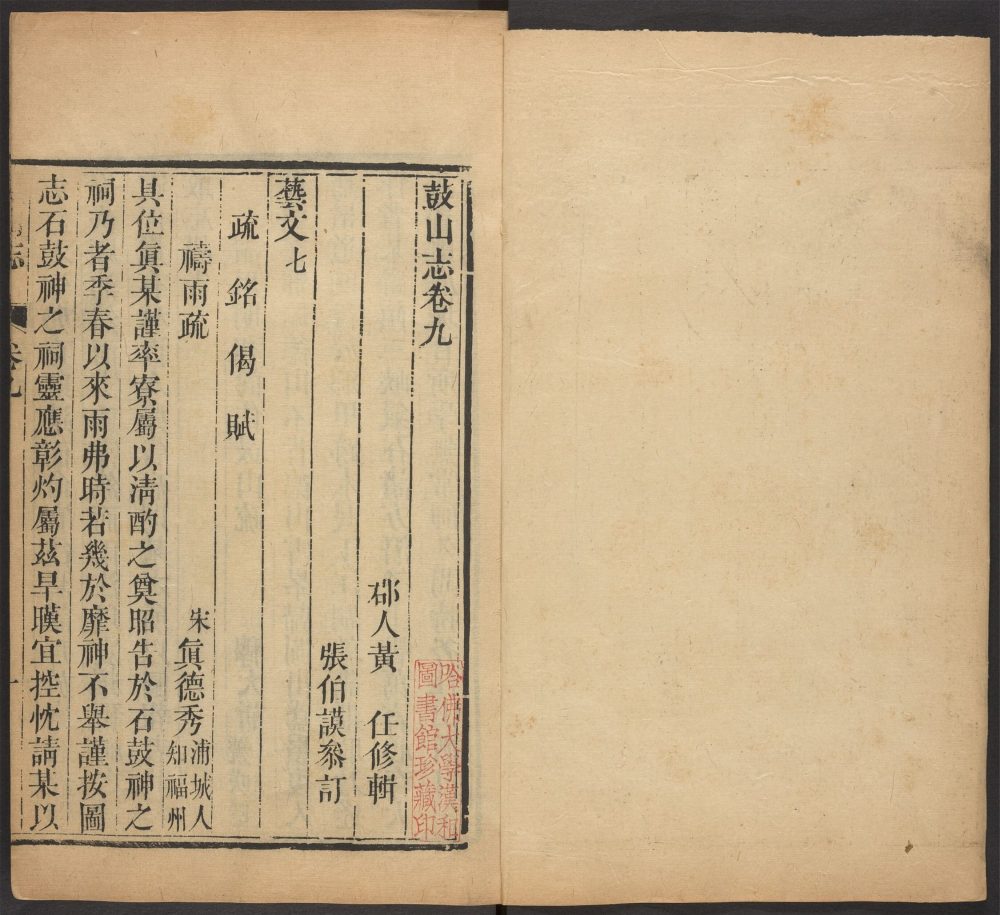 鼓山志卷九
郡人黃 任修輯
張伯謨參訂
藝文七
疏 銘 偈 賦
禱雨疏 宋 眞德秀 浦城人知福州
具位眞某謹率寮屬以清酌之奠昭告於石鼓神之
祠乃者季春以來雨弗時若幾於靡神不舉謹按圖
志石鼓神之祠靈應彰灼屬茲旱暵宜控忱請某以
志 卷九 一
哈佛大學漢和
圖書館珍藏印